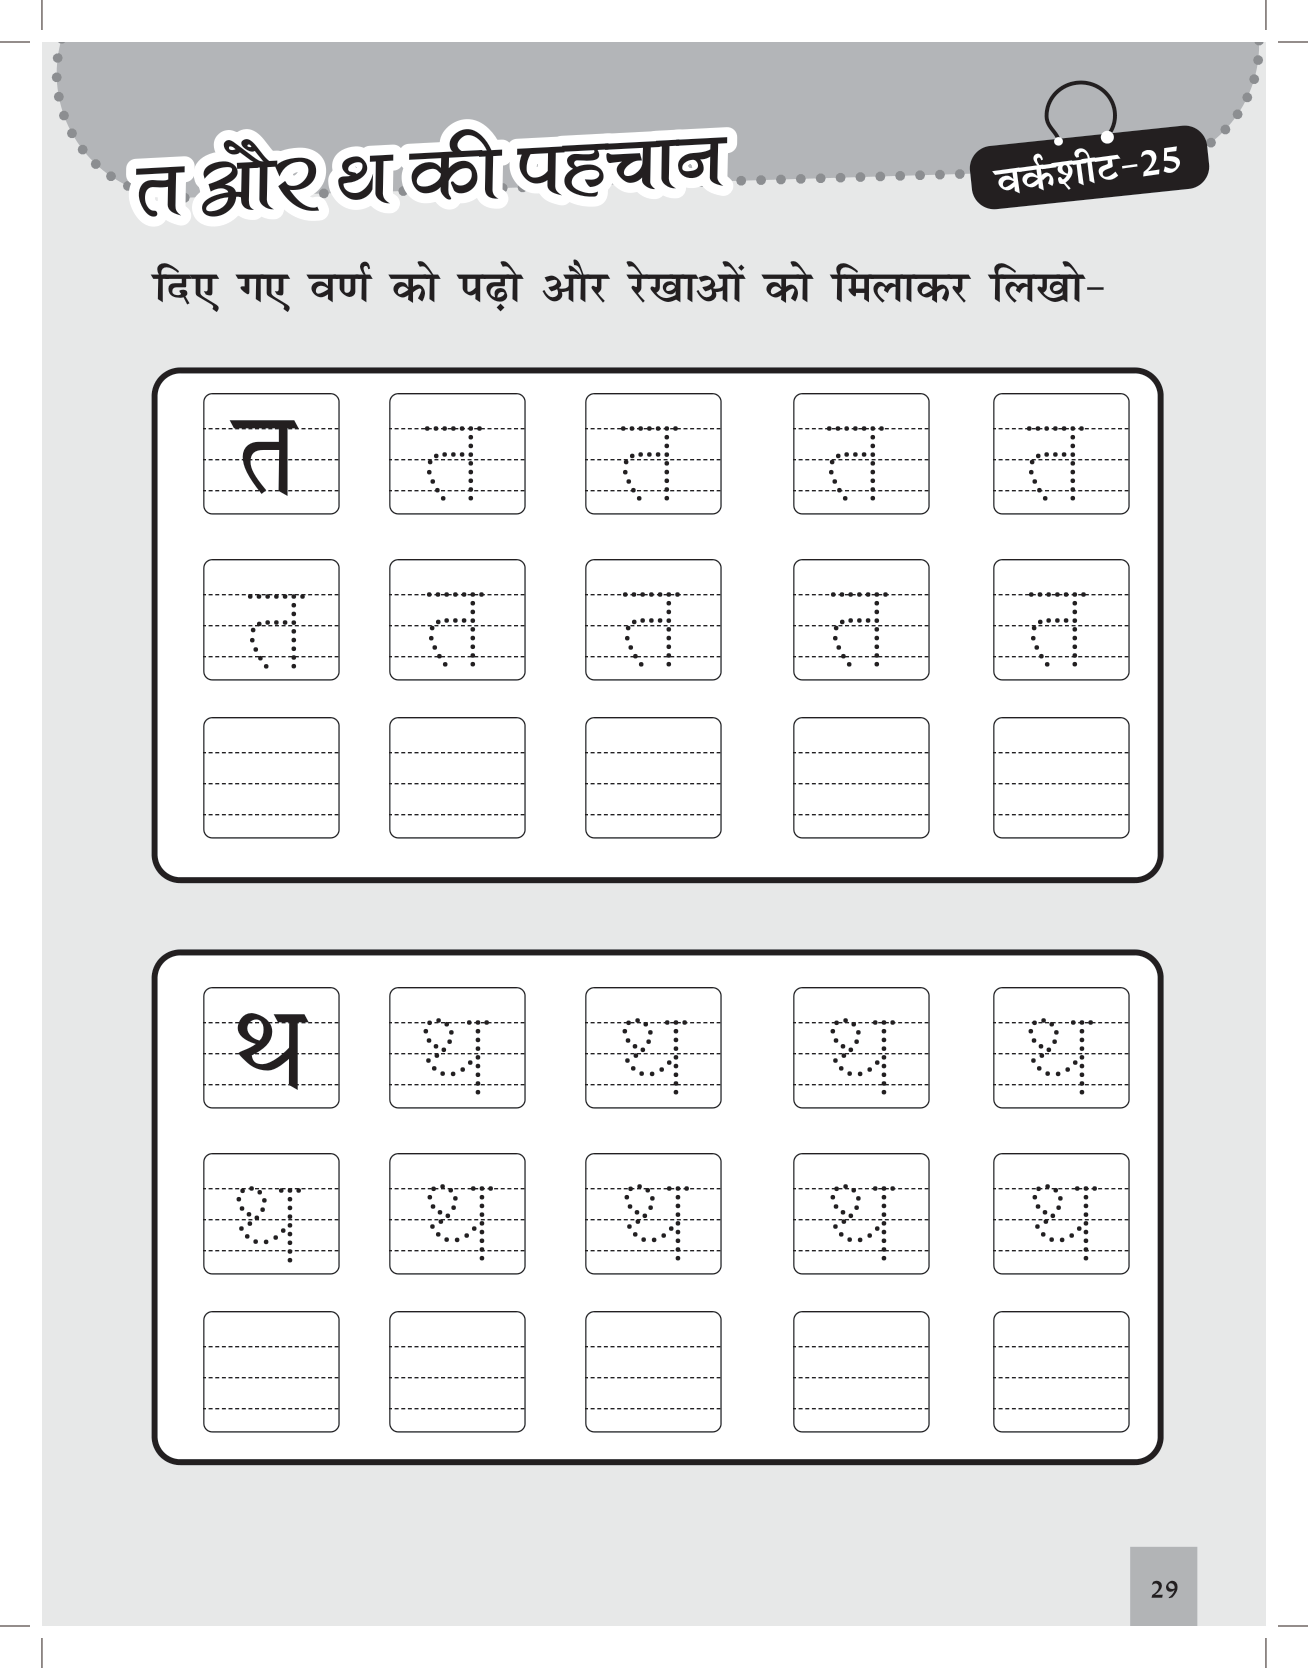 त और थ की पहचान
वर्कशीट-25
दिए गए वर्ण को पढ़ो और रेखाओं को मिलाकर लिखो-
त त त त त
त त त त त
थ थ थ थ थ
थ थ थ थ थ
29